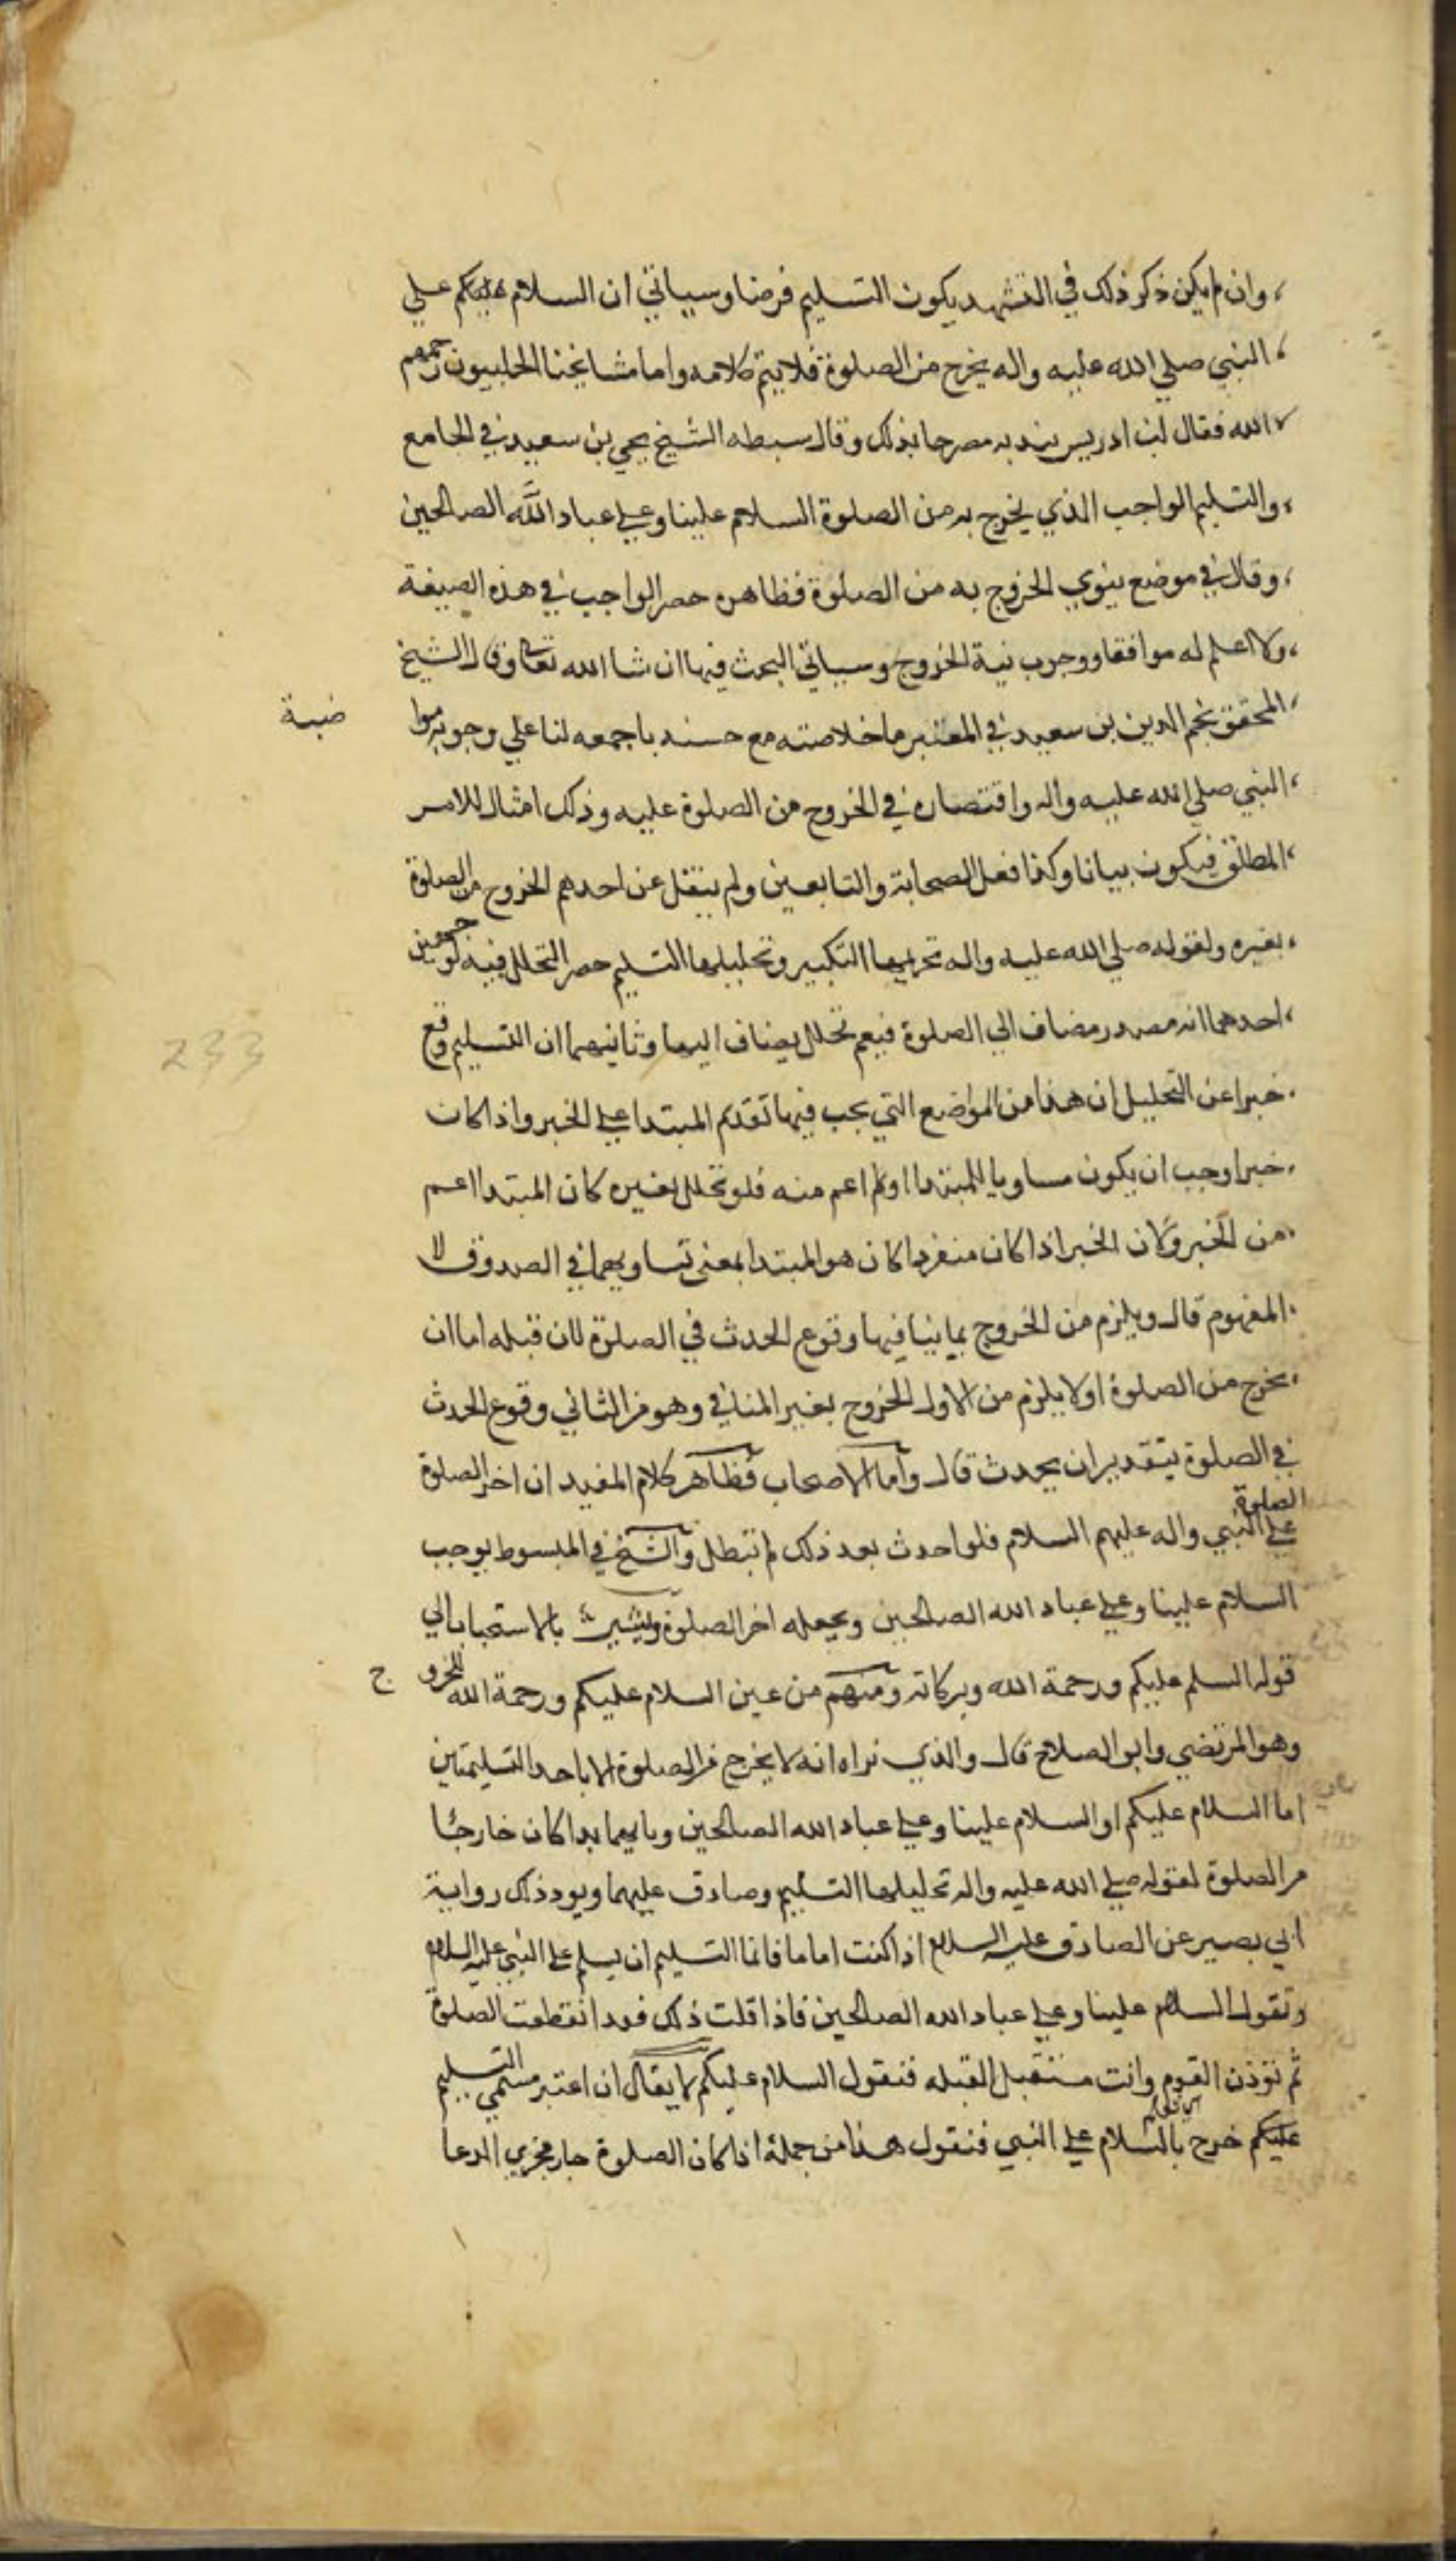 وان لم يكن ذكر ذلك في التشهد يكون التسليم فرضا وسياتي ان السلام عليكم علي
النبي صلي الله عليه واله يخرج من الصلوة فلا يتم كلامه واما مشايخنا الحلبيون رحمهم
الله فقال ابن ادريس بندبه مصرحا بذلك وقال سبطه الشيخ يحيي بن سعيد في الجامع
والتسليم الواجب الذي يخرج به من الصلوة السلام علينا وعلي عباد الله الصالحين
وقال في موضع ينوي الخروج به من الصلوة فظاهره حصر الواجب في هذه الصيغة
ولا اعلم له موافقا ووجوب نية الخروج وسياتي البحث فيها ان شا الله تعالي وقال الشيخ
المحقق نجم الدين بن سعيد في المعتبر ما خلاصته مع حسنه باجمعه لنا علي وجوبه موا
ضبة
النبي صلي الله عليه واله واقتصاره في الخروج من الصلوة عليه وذلك امثال للامر
المطلق فيكون بيانا وكذا فعل الصحابة والتابعين ولم ينقل عن احدهم الخروج من الصلوة
بغيره ولقوله صلي الله عليه واله تحريمها التكبير وتحليلها التسليم حصر التحلل فيه لوجهين
احدهما انه مصدر مضاف الي الصلوة فيعم تحلل يضاف اليها وثانيهما ان التسليم وقع
خبرا عن التحليل ان هذا من المواضع التي يجب فيها تقدم المبتدا علي الخبر واذا كان
خبرا وجب ان يكون مساويا للمبتدا او اعم منه فلو تحلل بغيره كان المبتدا اعم
من الخبر وكان الخبر اذا كان منفردا كان هو المبتدا بمعني تساويهما في الصدوق لا
المفهوم قال ويلزم من الخروج بما ينافيها وقوع الحدث في الصلوة لان قبله اما ان
يخرج من الصلوة او لا يلزم من الاول الخروج بغير المنافي وهو من الثاني وقوع الحدث
في الصلوة بتقدير ان يحدث قال واما الاصحاب فظاهر كلام المفيد ان اخر الصلوة
الصلوة
علي النبي واله عليهم السلام فلو احدث بعد ذلك لم تبطل والشيخ في المبسوط يوجب
السلام علينا وعلي عباد الله الصالحين ويجعله اخر الصلوة ويشير بالاستحباب الي
قوله السلم عليكم ورحمة الله وبركاته ومنهم من عين السلام عليكم ورحمة الله للخرو ج
وهو المرتضي وابو الصلاح قال والذي نراه انه لا يخرج من الصلوة الا باحد التسليمتين
اما السلام عليكم او السلام علينا وعلي عباد الله الصالحين وبايهما بدا كان خارجا
من الصلوة لقوله صلي الله عليه واله تحليلها التسليم وصادق عليهما ويود ذلك رواية
ابي بصير عن الصادق عليه السلام اذا كنت اماما فانما التسليم ان يسلم علي النبي عليه السلام
وتقول السلام علينا وعلي عباد الله الصالحين فاذا قلت ذلك فقد انقطعت الصلوة
ثم توذن القوم وانت مستقبل القبله فنقول السلام عليكم لا يقال ان اعتبر مسمي التسليم
عليكم خرج بالسلام علي النبي فنقول هذا من جملة اذا كان الصلوة جار مجري الدعا
233